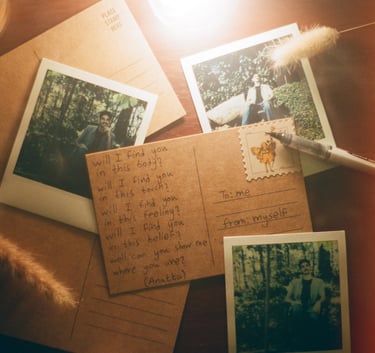 PLACE
STAMP
HERE
Will I find you
in this body?
will I find you
in this touch?
will I find you
in this feeling?
Will I find you
in this belief?
well can you show me
where you are?
(Anatta)
To: me
from: myself